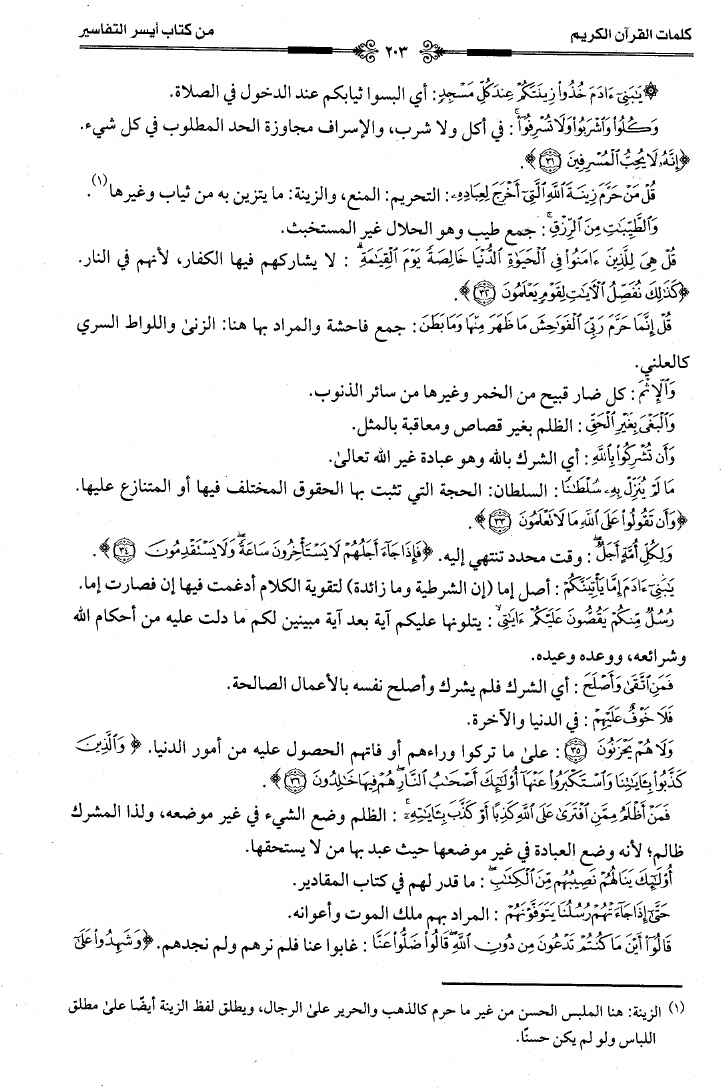 كلمات القرآن الكريم
٢٠٣
من كتاب أيسر التفاسير
۞ يَٰبَنِيٓ ءَادَمَ خُذُواْ زِينَتَكُمۡ عِندَ كُلِّ مَسۡجِدٖ: أي البسوا ثيابكم عند الدخول في الصلاة.
وَكُلُواْ وَٱشۡرَبُواْ وَلَا تُسۡرِفُوٓاْۚ: في أكل ولا شرب، والإسراف مجاوزة الحد المطلوب في كل شيء.
﴿إِنَّهُۥ لَا يُحِبُّ ٱلۡمُسۡرِفِينَ ٣١﴾.
قُلۡ مَنۡ حَرَّمَ زِينَةَ ٱللَّهِ ٱلَّتِيٓ أَخۡرَجَ لِعِبَادِهِۦ: التحريم: المنع، والزينة: ما يتزين به من ثياب وغيرها(١).
وَٱلطَّيِّبَٰتِ مِنَ ٱلرِّزۡقِۚ: جمع طيب وهو الحلال غير المستخبث.
قُلۡ هِيَ لِلَّذِينَ ءَامَنُواْ فِي ٱلۡحَيَوٰةِ ٱلدُّنۡيَا خَالِصَةٗ يَوۡمَ ٱلۡقِيَٰمَةِۗ: لا يشاركهم فيها الكفار، لأنهم في النار.
﴿كَذَٰلِكَ نُفَصِّلُ ٱلۡأٓيَٰتِ لِقَوۡمٖ يَعۡلَمُونَ ٣٢﴾.
قُلۡ إِنَّمَا حَرَّمَ رَبِّيَ ٱلۡفَوَٰحِشَ مَا ظَهَرَ مِنۡهَا وَمَا بَطَنَ: جمع فاحشة والمراد بها هنا: الزنىٰ واللواط السري
كالعلني.
وَٱلۡإِثۡمَ: كل ضار قبيح من الخمر وغيرها من سائر الذنوب.
وَٱلۡبَغۡيَ بِغَيۡرِ ٱلۡحَقِّ: الظلم بغير قصاص ومعاقبة بالمثل.
وَأَن تُشۡرِكُواْ بِٱللَّهِ: أي الشرك بالله وهو عبادة غير الله تعالىٰ.
مَا لَمۡ يُنَزِّلۡ بِهِۦ سُلۡطَٰنٗا: السلطان: الحجة التي تثبت بها الحقوق المختلف فيها أو المتنازع عليها.
﴿وَأَن تَقُولُواْ عَلَى ٱللَّهِ مَا لَا تَعۡلَمُونَ ٣٣﴾.
وَلِكُلِّ أُمَّةٍ أَجَلٞۖ: وقت محدد تنتهي إليه. ﴿فَإِذَا جَآءَ أَجَلُهُمۡ لَا يَسۡتَأۡخِرُونَ سَاعَةٗ وَلَا يَسۡتَقۡدِمُونَ ٣٤﴾.
يَٰبَنِيٓ ءَادَمَ إِمَّا يَأۡتِيَنَّكُمۡ: أصل إما (إن الشرطية وما زائدة) لتقوية الكلام أدغمت فيها إن فصارت إما.
رُسُلٞ مِّنكُمۡ يَقُصُّونَ عَلَيۡكُمۡ ءَايَٰتِي: يتلونها عليكم آية بعد آية مبينين لكم ما دلت عليه من أحكام الله
وشرائعه، ووعده وعيده.
فَمَنِ ٱتَّقَىٰ وَأَصۡلَحَ: أي الشرك فلم يشرك وأصلح نفسه بالأعمال الصالحة.
فَلَا خَوۡفٌ عَلَيۡهِمۡ: في الدنيا والآخرة.
وَلَا هُمۡ يَحۡزَنُونَ ٣٥: علىٰ ما تركوا وراءهم أو فاتهم الحصول عليه من أمور الدنيا. ﴿وَٱلَّذِينَ
كَذَّبُواْ بِـَٔايَٰتِنَا وَٱسۡتَكۡبَرُواْ عَنۡهَآ أُوْلَٰٓئِكَ أَصۡحَٰبُ ٱلنَّارِۖ هُمۡ فِيهَا خَٰلِدُونَ ٣٦﴾.
فَمَنۡ أَظۡلَمُ مِمَّنِ ٱفۡتَرَىٰ عَلَى ٱللَّهِ كَذِبًا أَوۡ كَذَّبَ بِـَٔايَٰتِهِۦٓۚ: الظلم وضع الشيء في غير موضعه، ولذا المشرك
ظالم؛ لأنه وضع العبادة في غير موضعها حيث عبد بها من لا يستحقها.
أُوْلَٰٓئِكَ يَنَالُهُمۡ نَصِيبُهُم مِّنَ ٱلۡكِتَٰبِۖ: ما قدر لهم في كتاب المقادير.
حَتَّىٰٓ إِذَا جَآءَتۡهُمۡ رُسُلُنَا يَتَوَفَّوۡنَهُمۡ: المراد بهم ملك الموت وأعوانه.
قَالُوٓاْ أَيۡنَ مَا كُنتُمۡ تَدۡعُونَ مِن دُونِ ٱللَّهِۖ قَالُواْ ضَلُّواْ عَنَّا: غابوا عنا فلم نرهم ولم نجدهم. ﴿وَشَهِدُواْ عَلَىٰٓ
(١) الزينة: هنا الملبس الحسن من غير ما حرم كالذهب والحرير علىٰ الرجال، ويطلق لفظ الزينة أيضًا علىٰ مطلق
اللباس ولو لم يكن حسنًا.